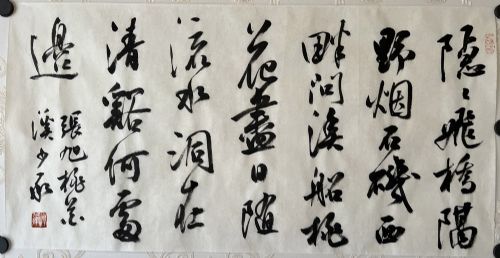 隐〻飛橋隔
野烟石磯西
畔问渔船桃
花盡日随
流水洞在
清谿何處
邊
張旭桃花
溪 少承